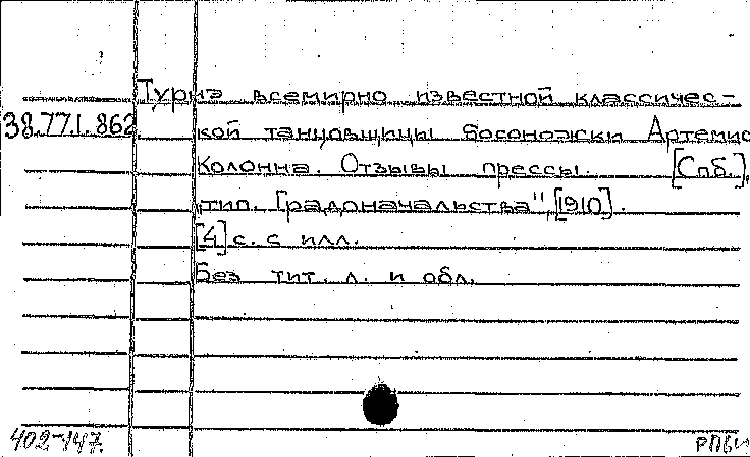 Турнэ всемирно известной классичес-
38.77.1.862 кой танцовщицы босоножки Артемис
Колонна. Отзывы прессы. [Спб.],
„тип. Градоначальства", [1910].
[4] с. с илл.
Без тит. л. и обл.
402-147.